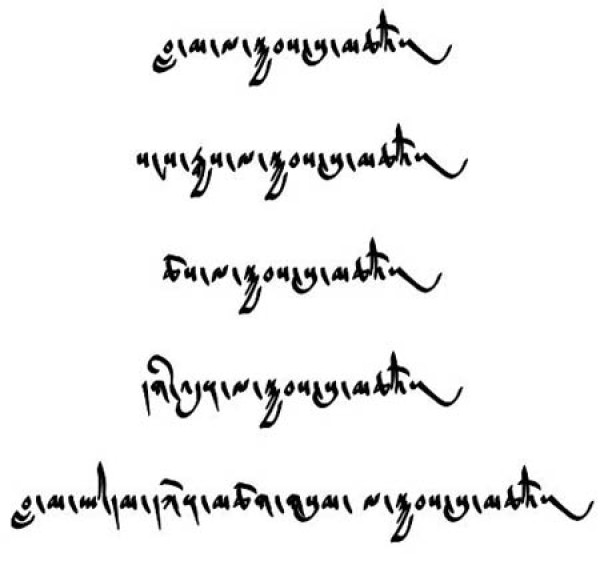 བླ་མ་ལ་སྐྱབས་སུ་མཆིའོ
སངས་རྒྱས་ལ་སྐྱབས་སུ་མཆིའོ
ཆོས་ལ་སྐྱབས་སུ་མཆིའོ
དགེ་འདུན་ལ་སྐྱབས་སུ་མཆིའོ
བླ་མ་ཡི་དམ་དཀོན་མཆོག་གསུམ་ ལ་སྐྱབས་སུ་མཆིའོ